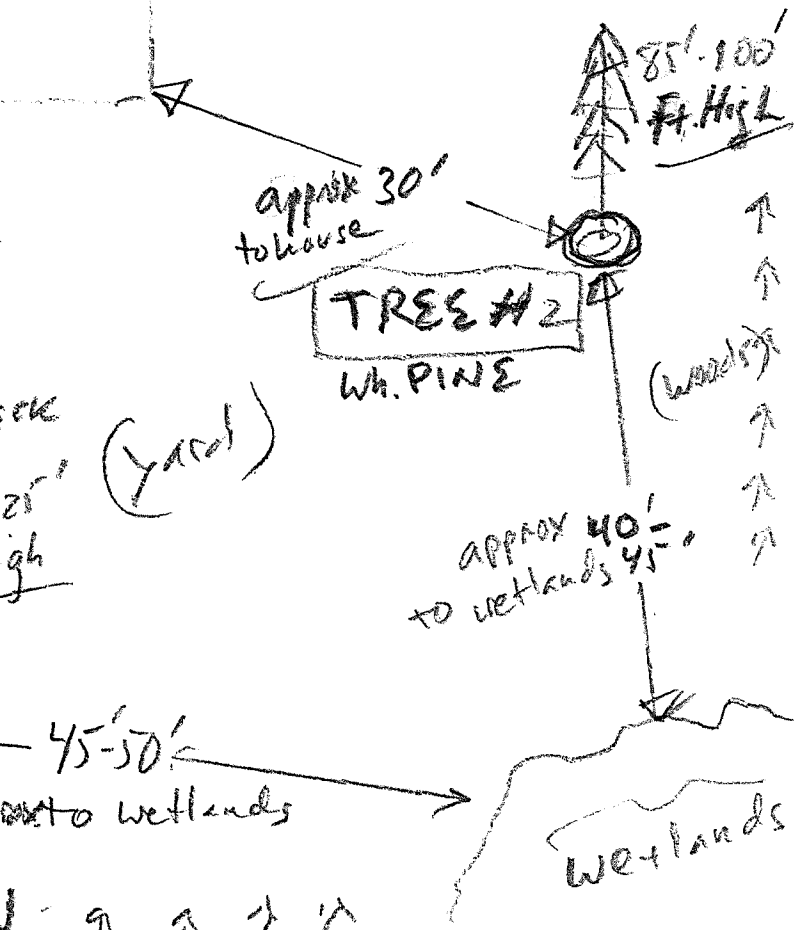 85'-100'
Ft. High
approx 30'
to house
TREE #2
Wh. PINE
(woods)
(yard)
25'
gh
approx 40'-
to wetlands 45'
45'-50'
to wetlands
wetlands